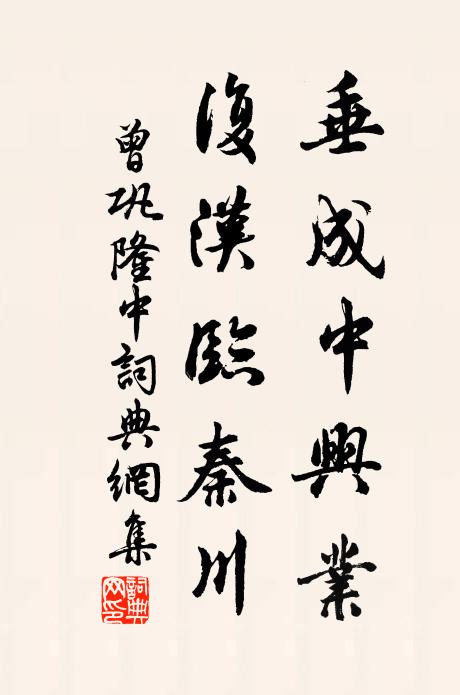 垂成中興業
復漢臨秦川
曾巩隆中詞典網集
詞典
网印